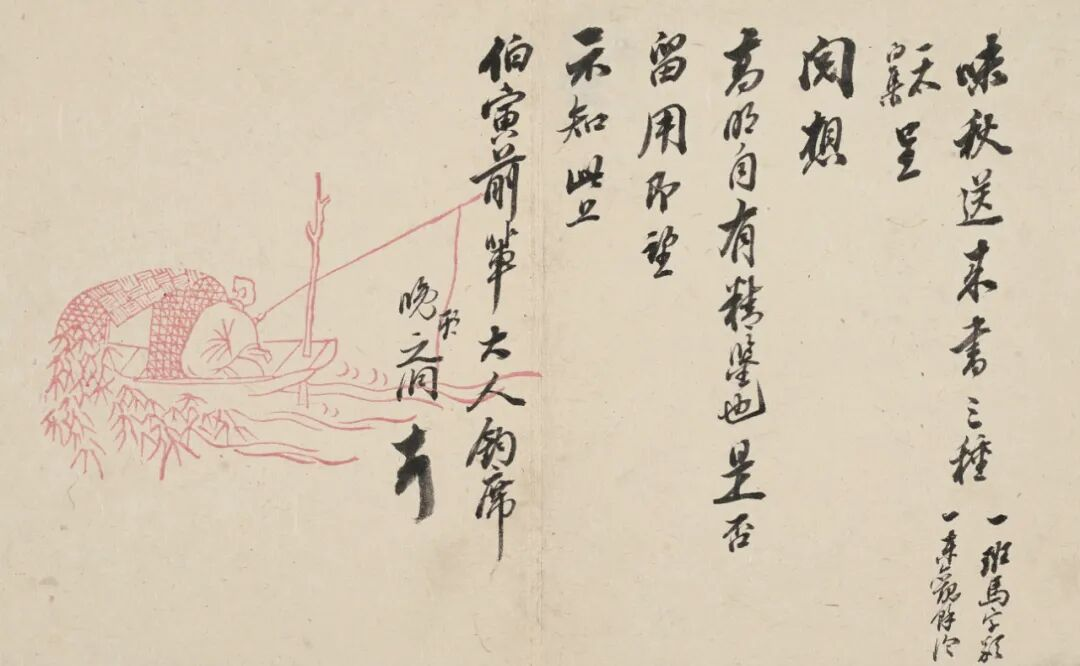 味秋送来書三種
一班馬字類
一東觀餘論
一太
白集
呈
閱想
高明自有精鑒也是否
留用即望
示知此上
伯寅前輩大人鈞席
晚之洞